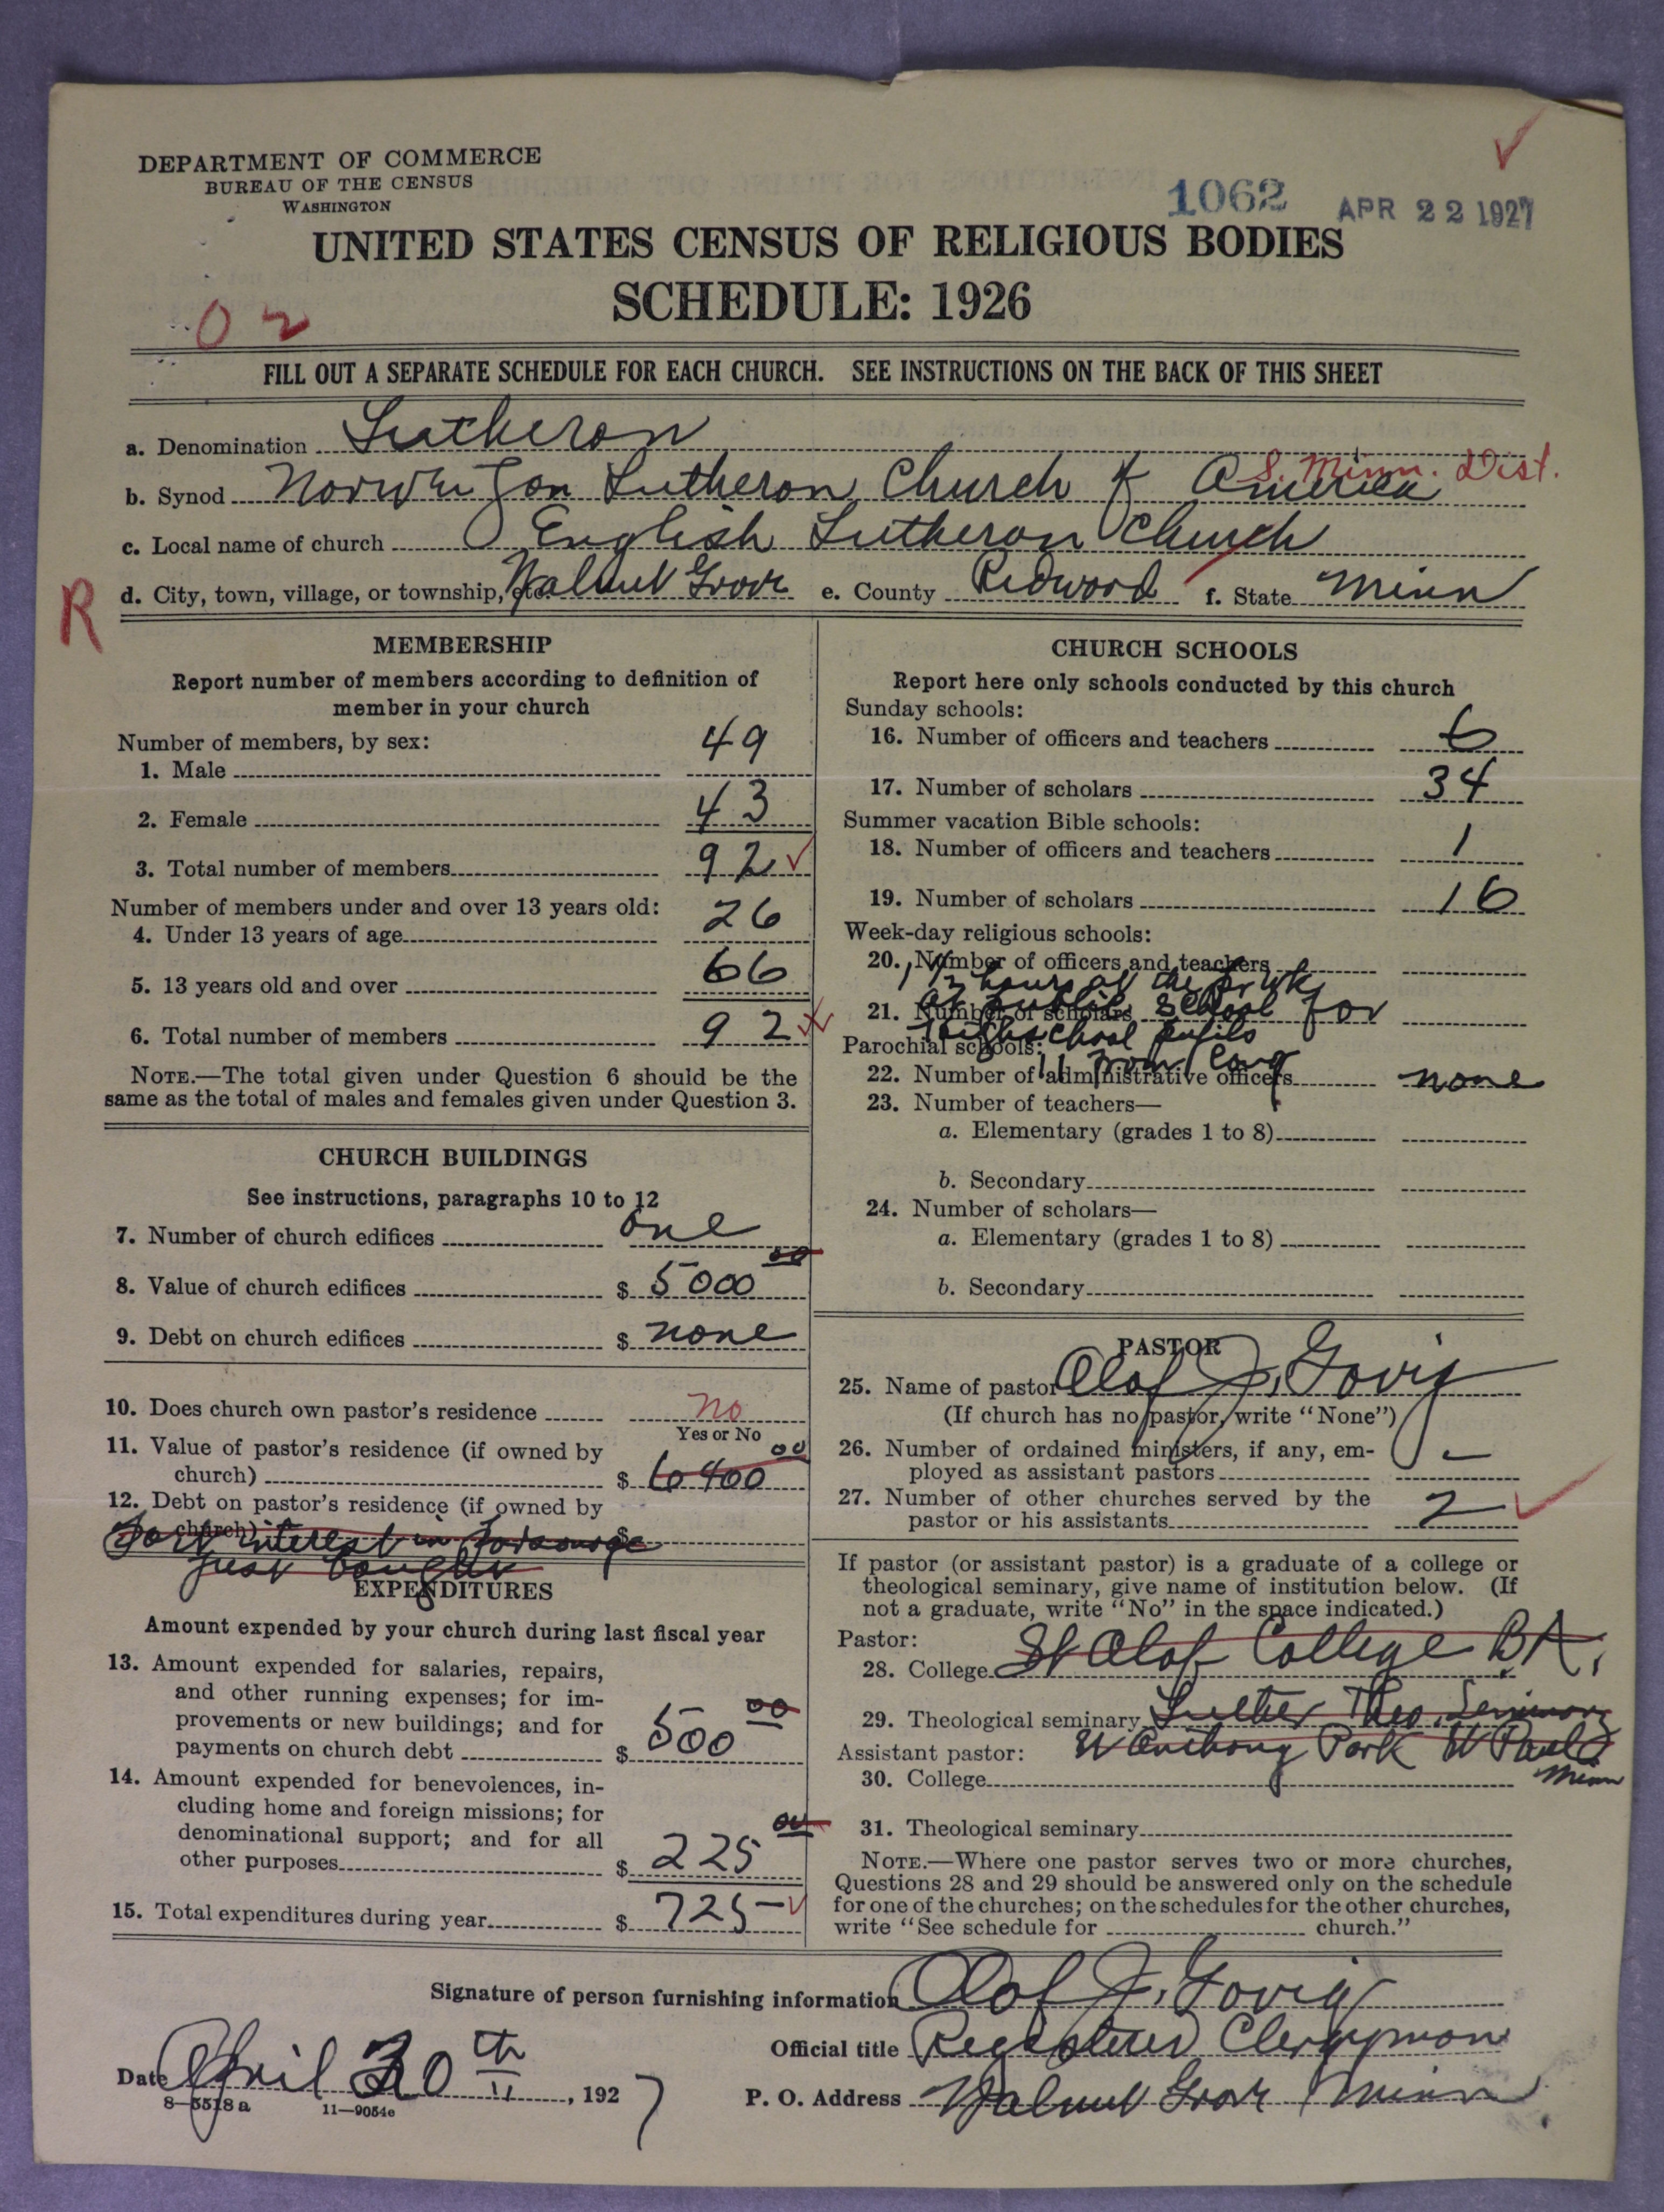 DEPARTMENT OF COMMERCE
BUREAU OF THE CENSUS
WASHINGTON
1062 APR 22 1927
UNITED STATES CENSUS OF RELIGIOUS BODIES
SCHEDULE: 1926
02
FILL OUT A SEPARATE SCHEDULE FOR EACH CHURCH. SEE INSTRUCTIONS ON THE BACK OF THIS SHEET
a. Denomination Lutheran
S. Minn. Dist.
b. Synod Norwegian Lutheran Church of America
c. Local name of church English Lutheran Church
R
d. City, town, village, or township, etc. Walnut Grove e. County Redwood f. State Minn
MEMBERSHIP
Report number of members according to definition of
member in your church
Number of members, by sex:
1. Male 49
2. Female 43
3. Total number of members 92
Number of members under and over 13 years old:
4. Under 13 years of age 26
5. 13 years old and over 66
6. Total number of members 92
NOTE.—The total given under Question 6 should be the
same as the total of males and females given under Question 3.
CHURCH BUILDINGS
See instructions, paragraphs 10 to 12
7. Number of church edifices one
8. Value of church edifices $ 5000 00
9. Debt on church edifices $ none
10. Does church own pastor's residence no
Yes or No
11. Value of pastor's residence (if owned by
church) $ 6400 00
12. Debt on pastor's residence (if owned by
church) $
Part interest in Parsonage
just bought
EXPENDITURES
Amount expended by your church during last fiscal year
13. Amount expended for salaries, repairs,
and other running expenses; for im-
provements or new buildings; and for
payments on church debt $ 500 00
14. Amount expended for benevolences, in-
cluding home and foreign missions; for
denominational support; and for all
other purposes $ 225 00
15. Total expenditures during year $ 725–
CHURCH SCHOOLS
Report here only schools conducted by this church
Sunday schools:
16. Number of officers and teachers 6
17. Number of scholars 34
Summer vacation Bible schools:
18. Number of officers and teachers 1
19. Number of scholars 16
Week-day religious schools:
20. Number of officers and teachers
hours the wk
21. Number of scholars
at public school for
High school pupils
Parochial schools:
11 from cong
22. Number of administrative officers none
23. Number of teachers—
a. Elementary (grades 1 to 8)
b. Secondary
24. Number of scholars—
a. Elementary (grades 1 to 8)
b. Secondary
PASTOR
25. Name of pastor Olaf J. Govig
(If church has no pastor, write "None")
26. Number of ordained ministers, if any, em-
ployed as assistant pastors –
27. Number of other churches served by the
pastor or his assistants 2
If pastor (or assistant pastor) is a graduate of a college or
theological seminary, give name of institution below. (If
not a graduate, write "No" in the space indicated.)
Pastor:
28. College St Olaf College B.A.
29. Theological seminary Luther Theo. Seminary
St Anthony Park St Paul Minn
Assistant pastor:
30. College
31. Theological seminary
NOTE.—Where one pastor serves two or more churches,
Questions 28 and 29 should be answered only on the schedule
for one of the churches; on the schedules for the other churches,
write "See schedule for church."
Signature of person furnishing information Olaf J. Govig
Official title Registered Clergyman
Date April 20th, 1927 P. O. Address Walnut Grove Minn
8—5518a 11—9054e